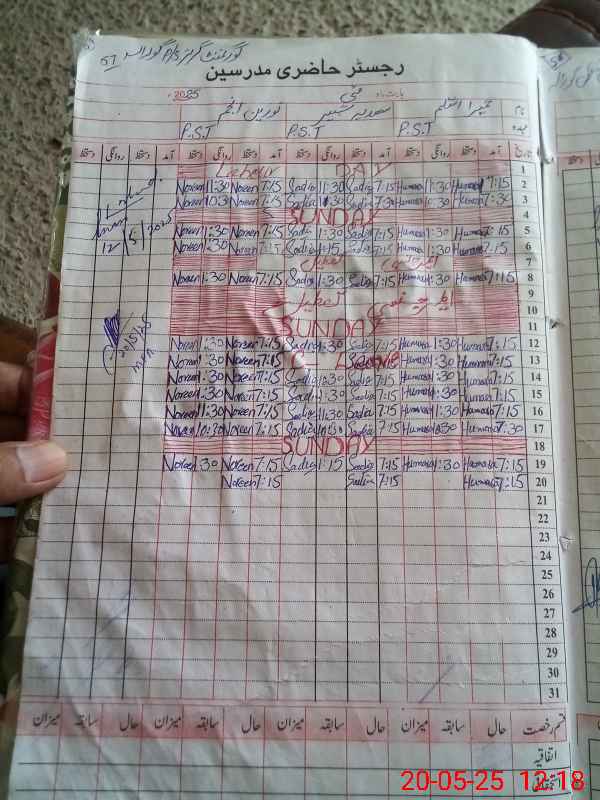 گورنمنٹ گرلز P/S
رجسٹر حاضری مدرسین
بابت ماہ مئی 2025
نام حمیرا اسلم سعدیہ شبیر نورین انجم
عہدہ P.S.T P.S.T P.S.T
تاریخ آمد دستخط روانگی دستخط آمد دستخط روانگی دستخط آمد دستخط روانگی دستخط آمد دستخط روانگی دستخط
Labour DAY 1
Noreen 1:30 Noreen 7:15 Sadia 1:30 Sadia 7:15 Humara 1:30 Humara 7:15 2
Noreen 10:3 Noreen 7:15 Sadia 10:30 Sadia 7:30 Humara 10:30 Humara 7:30 3
SUNDAY 4
Noreen 1:30 Noreen 7:15 Sadia 1:30 Sadia 7:15 Humara 1:30 Humara 7:15 5
12/5/2025
Noreen 1:30 Noreen 7:15 Sadia 1:15 Sadia 7:15 Humara 1:30 Humara 7:15 6
تعطیل 7
Noreen 1:30 Noreen 7:15 Sadia 1:30 Sadia 7:15 Humara 1:30 Humara 7:15 8
ایمرجنسی تعطیل 9
10
SUNDAY 11
Noreen 1:30 Noreen 7:15 Sadia 1:30 Sadia 7:15 Humara 1:30 Humara 7:15 12
20/5/25
Noreen 1:30 Noreen 7:15 Humara 1:30 Humara 7:15 13
Noreen 1:30 Noreen 7:15 Sadia 1:30 Sadia 7:15 Humara 1:30 Humara 7:15 14
Noreen 1:30 Noreen 7:15 Sadia 1:30 Sadia 7:15 Humara 1:30 Humara 7:15 15
Noreen 1:30 Noreen 7:15 Sadia 1:30 Sadia 7:15 Humara 1:30 Humara 7:15 16
Noreen 10:30 Noreen 7:15 Sadia 10:30 Sadia 7:15 Humara 10:30 Humara 7:30 17
SUNDAY 18
Noreen 1:30 Noreen 7:15 Sadia 1:15 Sadia 7:15 Humara 1:30 Humara 7:15 19
Noreen 7:15 Sadia 7:15 Humara 7:15 20
21
22
23
24
25
26
27
28
29
30
31
قسم رخصت حال سابقہ میزان حال سابقہ میزان حال سابقہ میزان حال سابقہ میزان
اتفاقیہ
استحقاقی
20-05-25 12:18